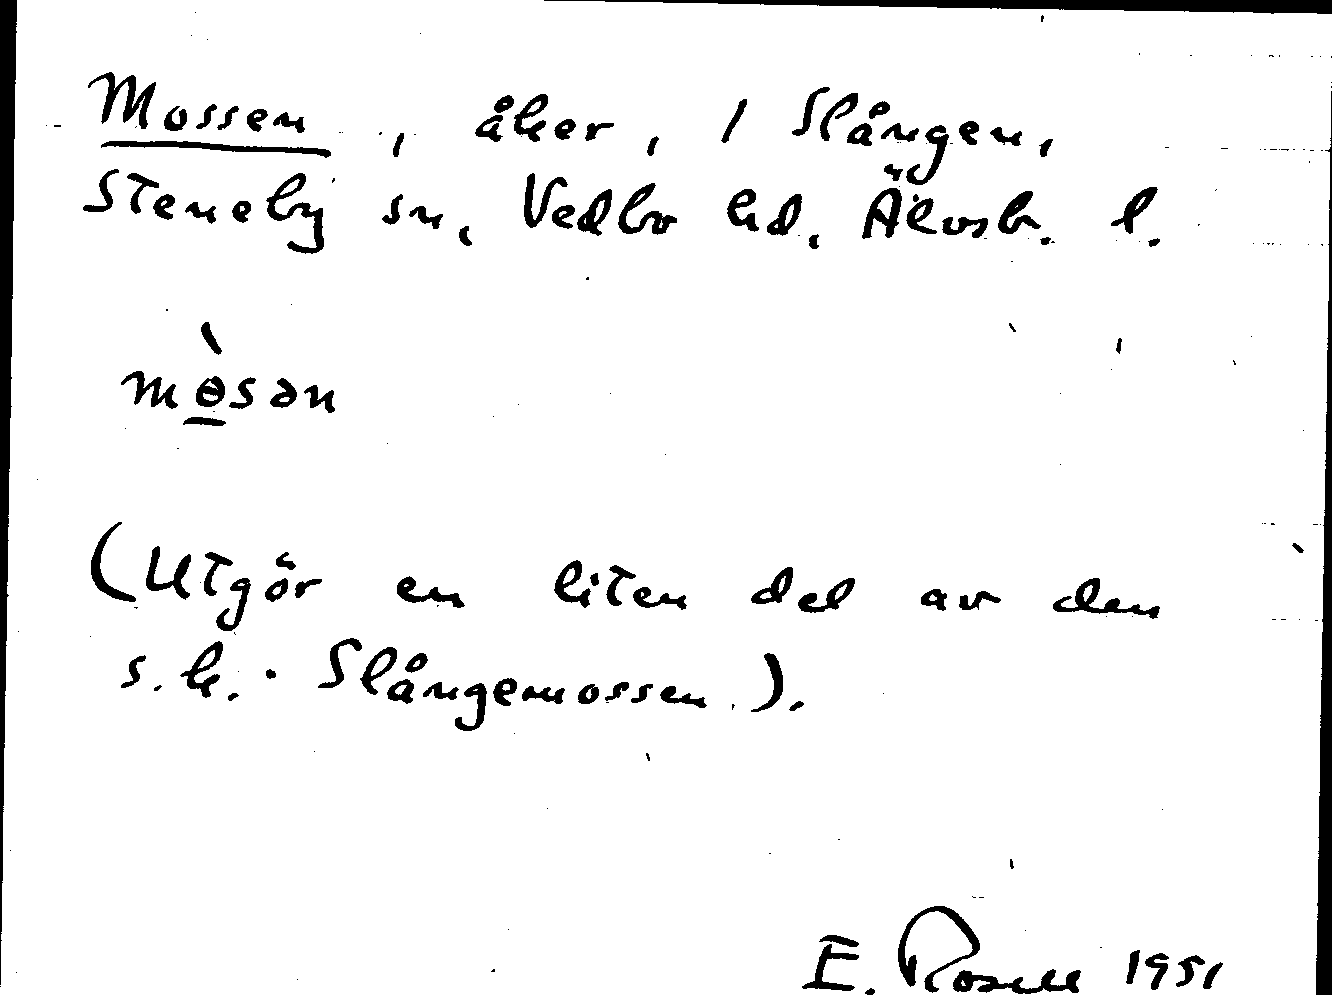 Mossen, åker, 1 Slången,
Steneby sn, Vedbo hd, Älvsb. l.
mө̲̀sən
(Utgör en liten del av den
s.k. Slångemossen).
E. Rosell 1951